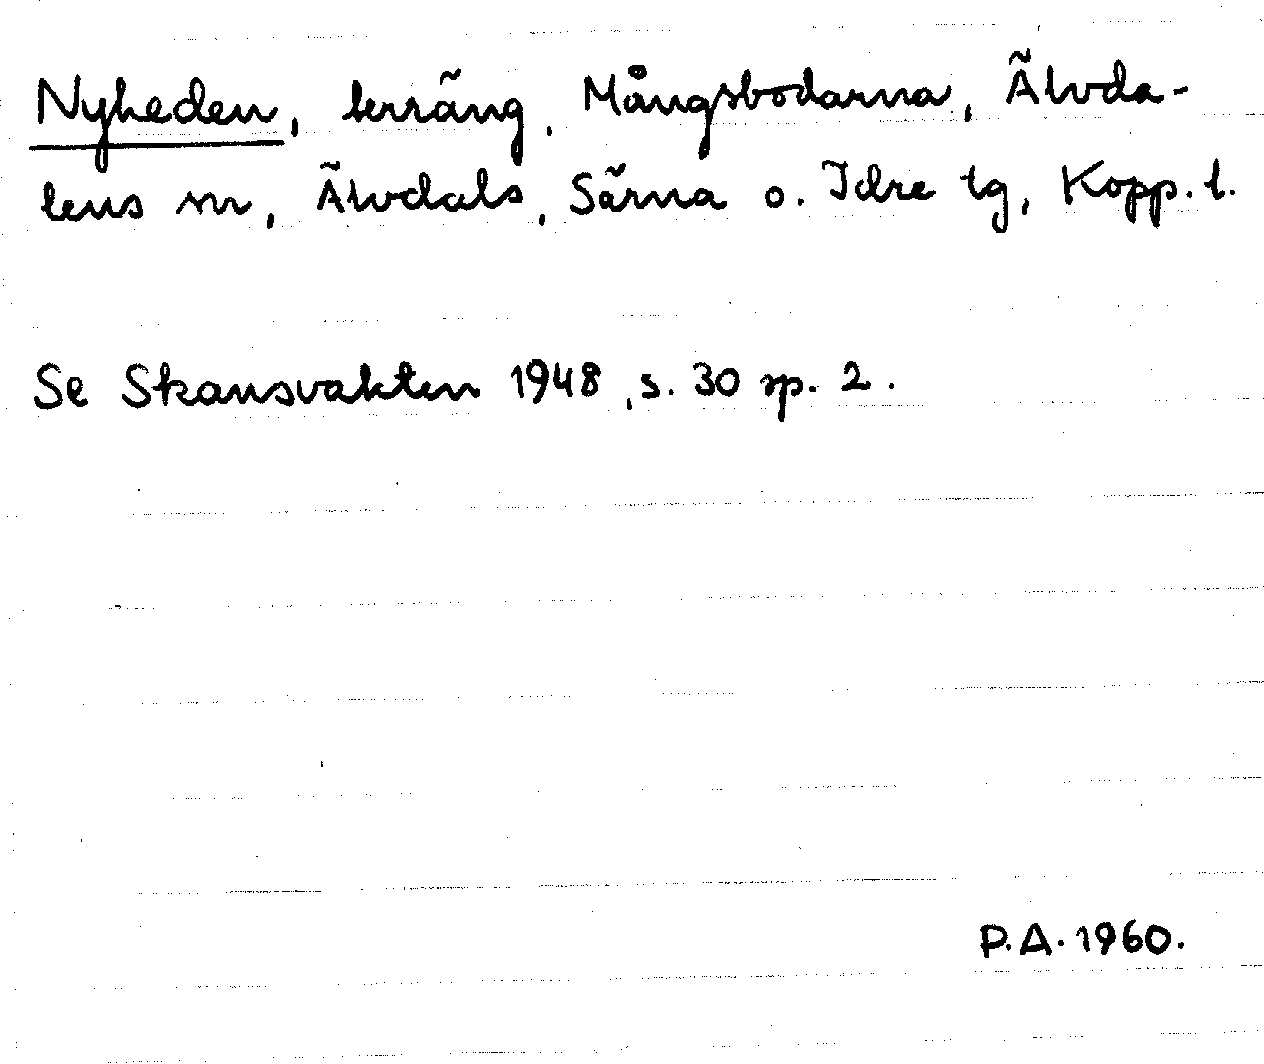 Nyheden, terräng, Mångsbodarna, Älvda-
lens sn, Älvdals, Särna o. Idre tg, Kopp. l.
Se Skansvakten 1948, s. 30 sp. 2.
P.A. 1960.